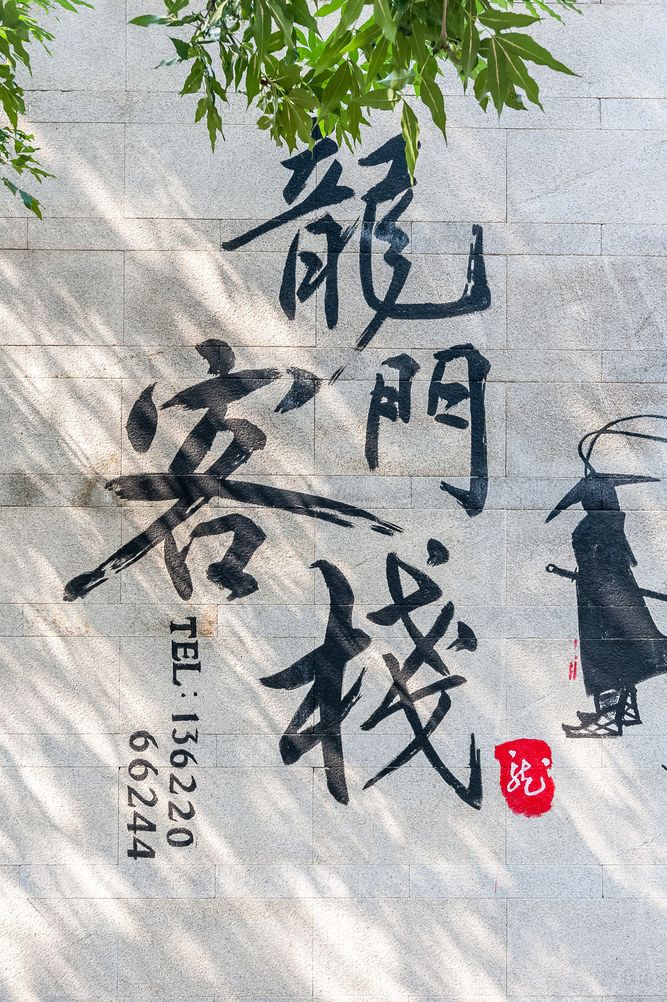 龍門
客栈
TEL: 136220
66244
龙